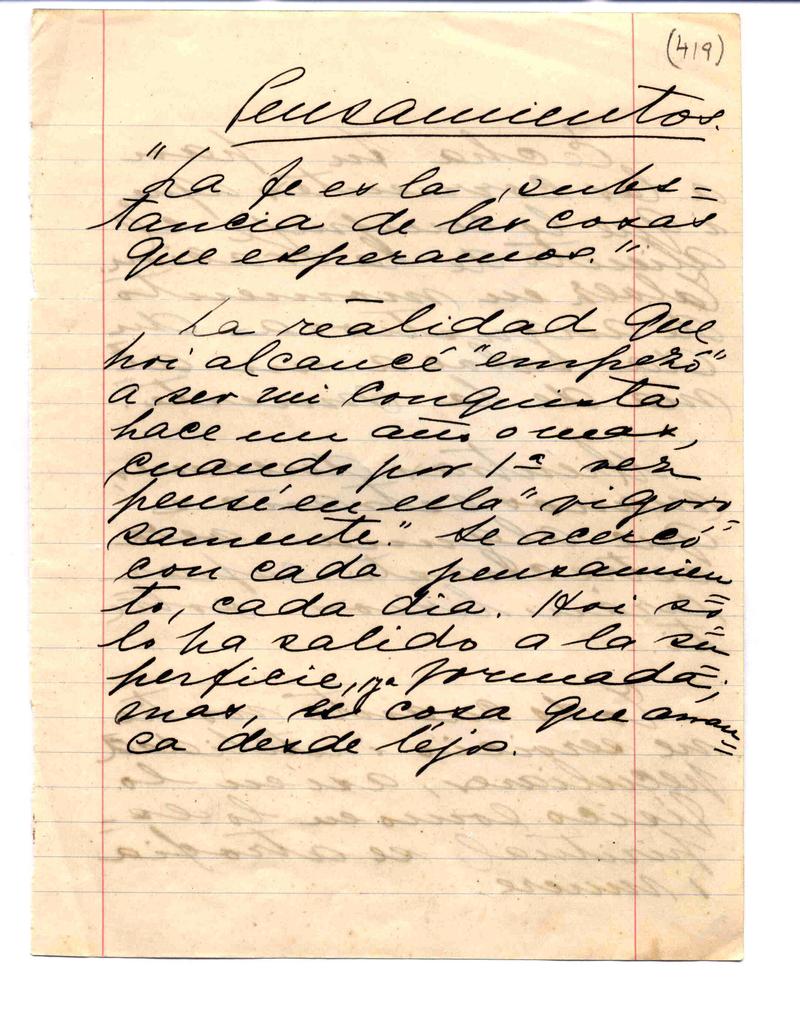 (419)
Pensamientos.
"La fe es la subs=
tancia de las cosas
que esperamos."
La realidad que
hoi alcancé "empezó"
a ser mi conquista
hace un año o mas,
cuando por 1ª vez
pensé en ella "vigoro=
samente." Se acercó
con cada pensamien=
to, cada dia. Hoi só=
lo ha salido a la su=
perficie, ya formada;
mas, es cosa que arran=
ca desde léjos.